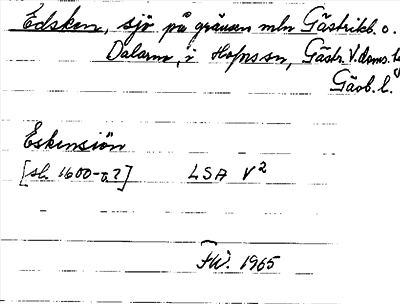 Edsken, sjö på gränsen mln Gästrikl. o.
Dalarna, i Hofors sn, Gästr. V. doms.
Gävb. l.
Eskensiön
[sl. 1600-t?] LSA V²
FW. 1965